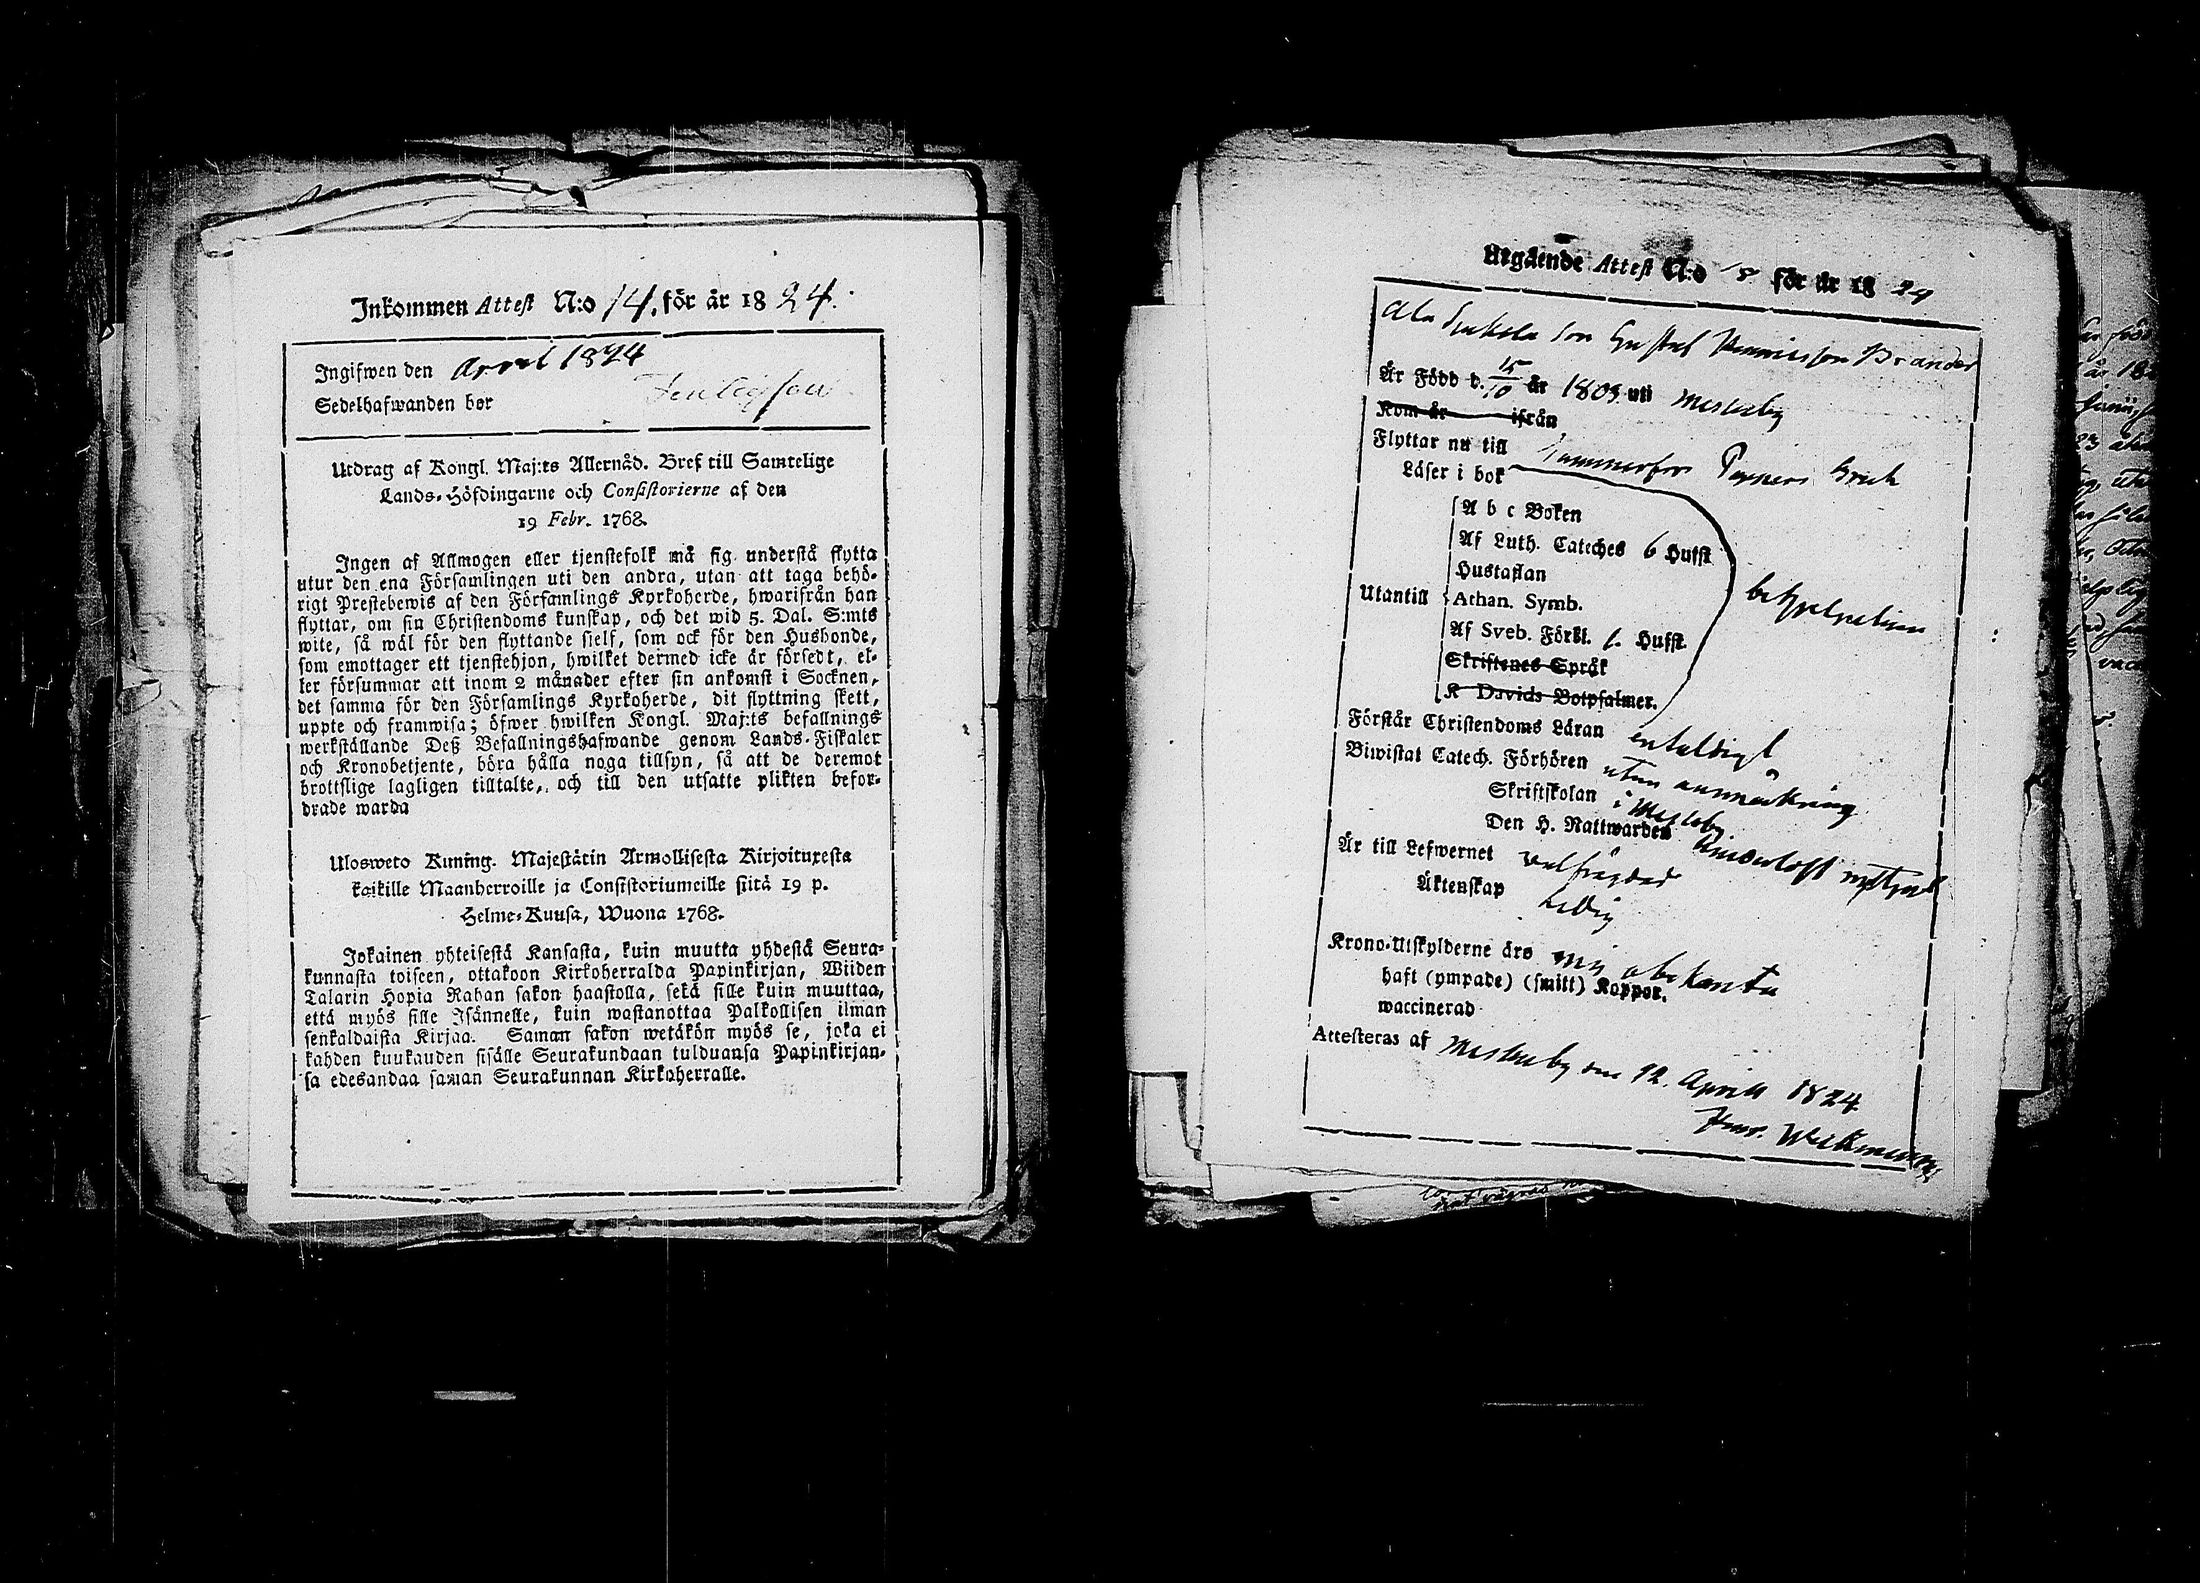 Inkommen Attest N:o 14. för år 1824.
Ingifwen den April 1824
Sedelhafwanden bor
Utdrag af Kongl. Maj:ts Allernåd. Bref till Samtelige
Lands-Höfdingarne och Consistorierne af den
19 Febr. 1768.
Ingen af Allmogen eller tjenstefolk må sig understå flytta
utur den ena Församlingen uti den andra, utan att taga behö-
rigt Prestebewis af den Församlings Kyrkoherde, hwarifrån han
flyttar, om sin Christendoms kunskap, och det wid 5. Dal. S:mts
wite, så wäl för den flyttande sjelf, som ock för den Husbonde,
som emottager ett tjenstehjon, hwilket dermed icke är försedt, el-
ler försummar att inom 2 månader efter sin ankomst i Socknen,
det samma för den Församlings Kyrkoherde, dit flyttning skett,
uppte och framwisa; öfwer hwilken Kongl. Maj:ts befallnings
werkställande Deß Befallningshafwande genom Lands-Fiskaler
och Kronobetjente, böra hålla noga tillsyn, så att de deremot
brottslige lagligen tilltalte, och till den utsatte plikten befor-
drade warda
Ulosweto Kuning. Majestätin Armollisesta Kirjoituxesta
kaikille Maanherroille ja Consistoriumeille siitä 19 p.
Helme-Kuusa, Wuona 1768.
Jokainen yhteisestä Kansasta, kuin muutta yhdestä Seura-
kunnasta toiseen, ottakoon Kirkoherralda Papinkirjan, Wiiden
Talarin Hopia Rahan sakon haastolla, sekä sille kuin muuttaa,
että myös sille Isännelle, kuin wastanottaa Palkollisen ilman
senkaldaista Kirjaa. Saman sakon wetäkön myös se, joka ei
kahden kuukauden sisälle Seurakundaan tulduansa Papinkirjan-
sa edesandaa saman Seurakunnan Kirkoherralle.
Utgående Attest N:o 8 för år 1824
son Gustaf Brander
Är Född d. 15/10 år 1803 uti Mesukby
Kom år ifrån
Flyttar nu till Tammerfors Pappers bruk
Läser i bok
A b c Boken
Af Luth. Cateches 6 Hufst
Hustaflan
Utantill Athan. Symb.
Af Sveb. Förkl. Hufst
Skriftenes Språk
K Davids Botpsalmer.
Förstår Christendoms Läran enfaldigt
Biwistat Catech. Förhören utan anmärkning
Skriftskolan i Mesukby
Den H. Nattwarden nyttjat
Är till Lefwernet välfrägdad
Äktenskap Ledig
Krono-Utskylderne äro mig obekanta
haft (ympade) (smitt) Koppor.
waccinerad
Attesteras af Mesukby den 12. April 1824